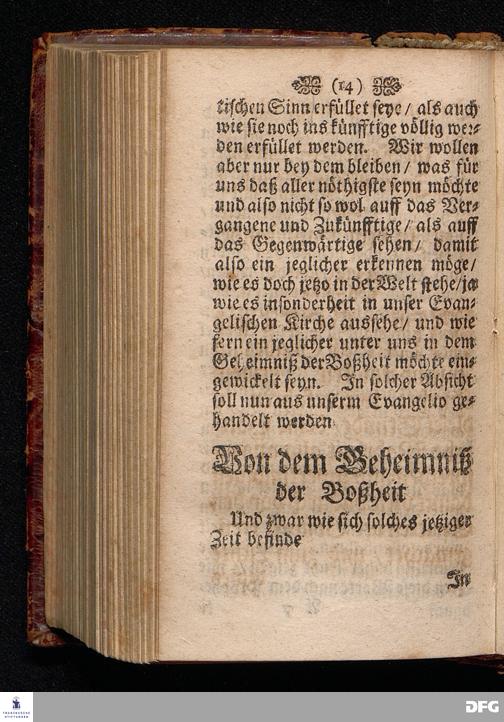 (14)
tischen Sinn erfüllet seye / als auch
wie sie noch ins künfftige völlig wer⸗
den erfüllet werden. Wir wollen
aber nur bey dem bleiben / was für
uns daß aller nöthigste seyn möchte
und also nicht so wol auff das Ver⸗
gangene und Zukünfftige / als auff
das Gegenwärtige sehen / damit
also ein jeglicher erkennen möge /
wie es doch jetzo in der Welt stehe / ja
wie es insonderheit in unser Evan⸗
gelischen Kirche aussehe / und wie
fern ein jeglicher unter uns in dem
Geheimniß der Boßheit möchte ein⸗
gewickelt seyn. In solcher Absicht
soll nun aus unserm Evangelio ge⸗
handelt werden
Von dem Geheimniß
der Boßheit
Und zwar wie sich solches jetziger
Zeit befinde
In
FRANCKESCHE STIFTUNGEN
DFG